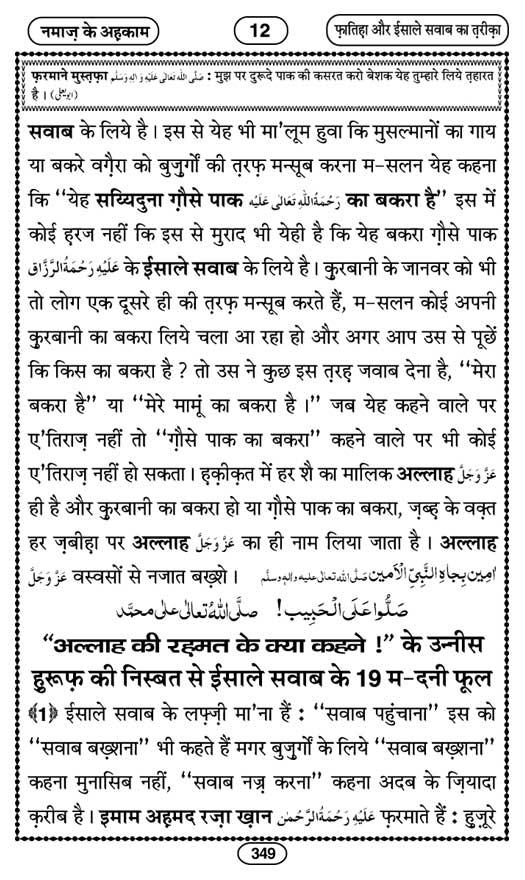 नमाज़ के अह़काम
12
फ़ातिह़ा और ईसाले सवाब का त़रीक़ा
फ़रमाने मुस्त़फ़ा صَلَّى اللهُ تَعَالٰى عَلَيْهِ وَاٰلِهٖ وَسَلَّم : मुझ पर दुरूदे पाक की कसरत करो बेशक येह तुम्हारे लिये त़हारत
है । (ابو يعلى)
सवाब के लिये है। इस से येह भी मा'लूम हुवा कि मुसल्मानों का गाय
या बकरे वग़ैरा को बुज़ुर्गों की त़रफ़ मन्सूब करना म-सलन येह कहना
कि ‘‘येह सय्यिदुना ग़ौसे पाक رَحْمَةُ اللهِ تَعَالٰى عَلَيْه का बकरा है’’ इस में
कोई ह़रज नहीं कि इस से मुराद भी येही है कि येह बकरा ग़ौसे पाक
عَلَيْهِ رَحْمَةُ الرَّزَّاق के ईसाले सवाब के लिये है। क़ुरबानी के जानवर को भी
तो लोग एक दूसरे ही की त़रफ़ मन्सूब करते हैं, म-सलन कोई अपनी
क़ुरबानी का बकरा लिये चला आ रहा हो और अगर आप उस से पूछें
कि किस का बकरा है ? तो उस ने कुछ इस त़रह़ जवाब देना है, ‘‘मेरा
बकरा है’’ या ‘‘मेरे मामूं का बकरा है ।’’ जब येह कहने वाले पर
ए'तिराज़ नहीं तो ‘‘ग़ौसे पाक का बकरा’’ कहने वाले पर भी कोई
ए'तिराज़ नहीं हो सकता। ह़क़ीक़त में हर शै का मालिक अल्लाह عَزَّ وَجَلَّ
ही है और क़ुरबानी का बकरा हो या ग़ौसे पाक का बकरा, ज़ब्ह़ के वक़्त
हर ज़बीह़ा पर अल्लाह عَزَّ وَجَلَّ का ही नाम लिया जाता है । अल्लाह
عَزَّ وَجَلَّ वस्वसों से नजात बख़्शे। اٰمِين بِجَاهِ النَّبِيِّ الْاَمين صَلَّى الله تعالى عليه واٰله وسلَّم
صَلُّوا عَلَى الْحَبِيب ! صلَّى اللهُ تعالى على محمَّد
‘‘अल्लाह की रह़मत के क्या कहने !’’ के उन्नीस
ह़ुरूफ़ की निस्बत से ईसाले सवाब के 19 म-दनी फूल
﴾1﴿ ईसाले सवाब के लफ़्ज़ी मा'ना हैं : ‘‘सवाब पहुंचाना’’ इस को
‘‘सवाब बख़्शना’’ भी कहते हैं मगर बुज़ुर्गों के लिये ‘‘सवाब बख़्शना’’
कहना मुनासिब नहीं, ‘‘सवाब नज़्र करना’’ कहना अदब के ज़ियादा
क़रीब है। इमाम अह़मद रज़ा ख़ान عَلَيْهِ رَحْمَةُ الرَّحْمٰن फ़रमाते हैं : हुज़ूरे
349